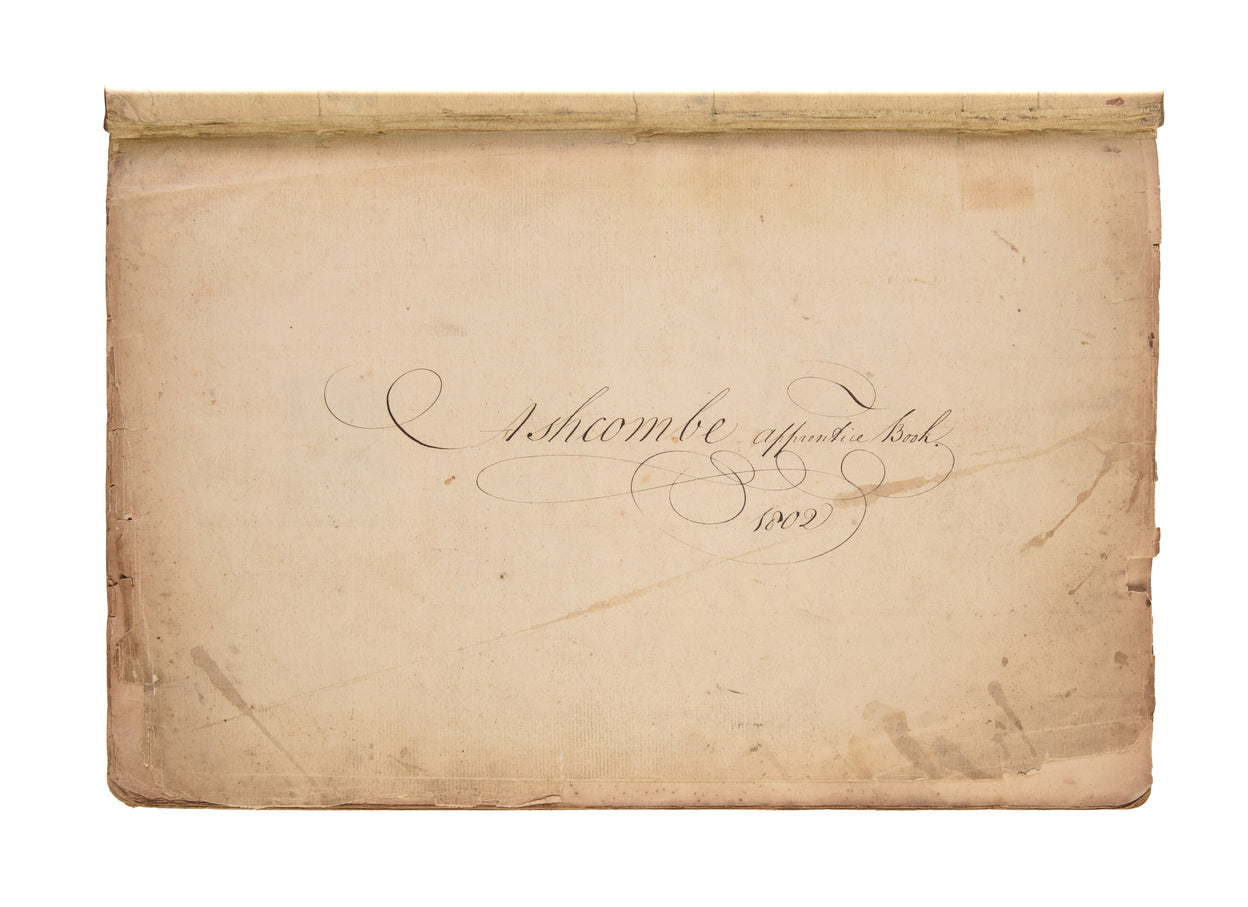 Ashcombe apprentice Book.
1802